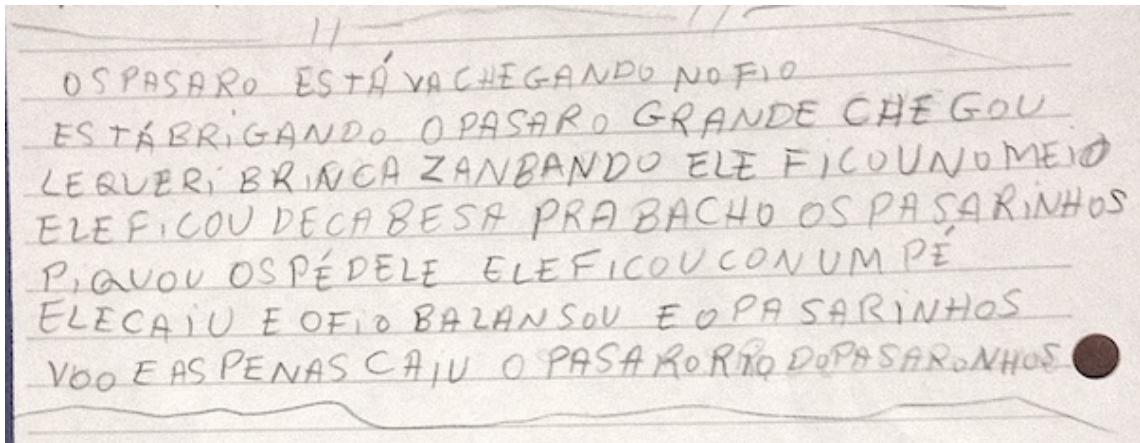 OSPASARO ESTÁ VACHEGANDO NOFIO
ESTÁBRIGANDO OPASARO GRANDE CHEGOU
LEQUERI BRINCA ZANBANDO ELE FICOUNOMEIO
ELEFICOU DECABESA PRABACHO OSPASARINHOS
PIQUOU OSPÉDELE ELEFICOUCONUM PÉ
ELECAIU EOFIO BALANSOU EOPASARINHOS
VOO EASPENAS CAIU O PASARORRIO DOPASARONHOS